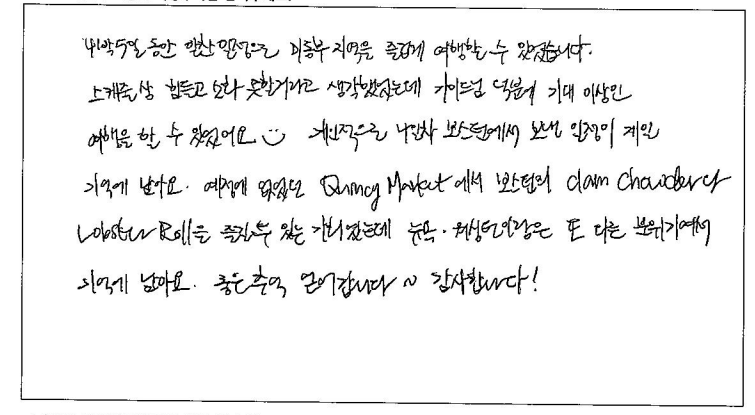 4박5일 동안 알찬 일정으로 미동부 지역을 즐겁게 여행할 수 있었습니다.
스케쥴상 힘들고 보라 못할거라고 생각했었는데 가이드님 덕분에 기대 이상인
여행을 할 수 있었어요 개인적으로 4일차 보스턴에서 보낸 일정이 제일
기억에 남아요. 예정에 없었던 Quincy Market에서 보스턴의 clam chowder나
Lobster Roll을 즐길수 있는 기회였는데 뉴욕·워싱턴이랑은 또 다른 분위기여서
기억에 남아요. 좋은추억 얻어갑니다~ 감사합니다!